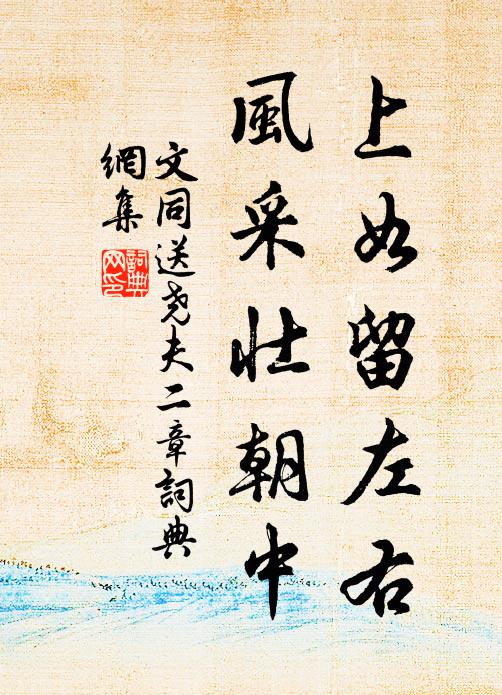 上如留左右
風采壯朝中
文同送堯夫二章詞典
網集
詞典
网印